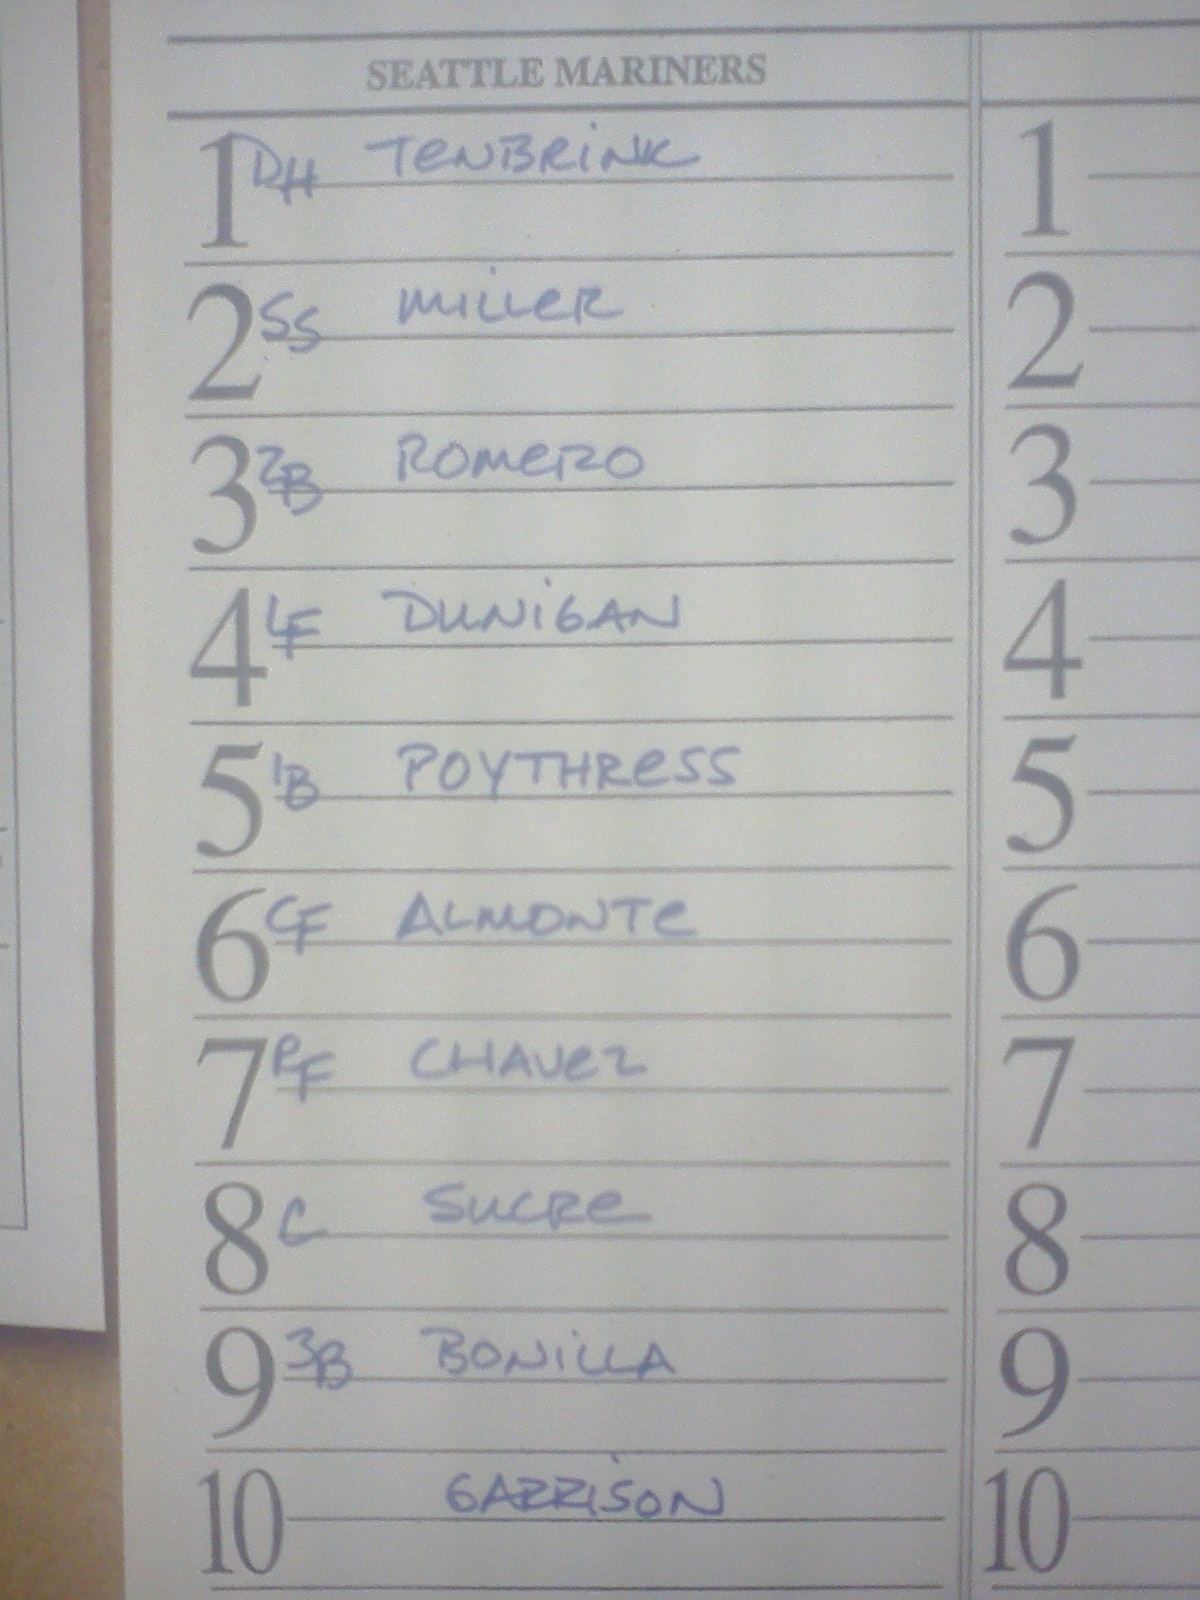 SEATTLE MARINERS
1 DH TENBRINK 1
2 SS MILLER 2
3 2B ROMERO 3
4 LF DUNIGAN 4
5 1B POYTHRESS 5
6 CF ALMONTE 6
7 RF CHAVEZ 7
8 C SUCRE 8
9 3B BONILLA 9
10 GARRISON 10